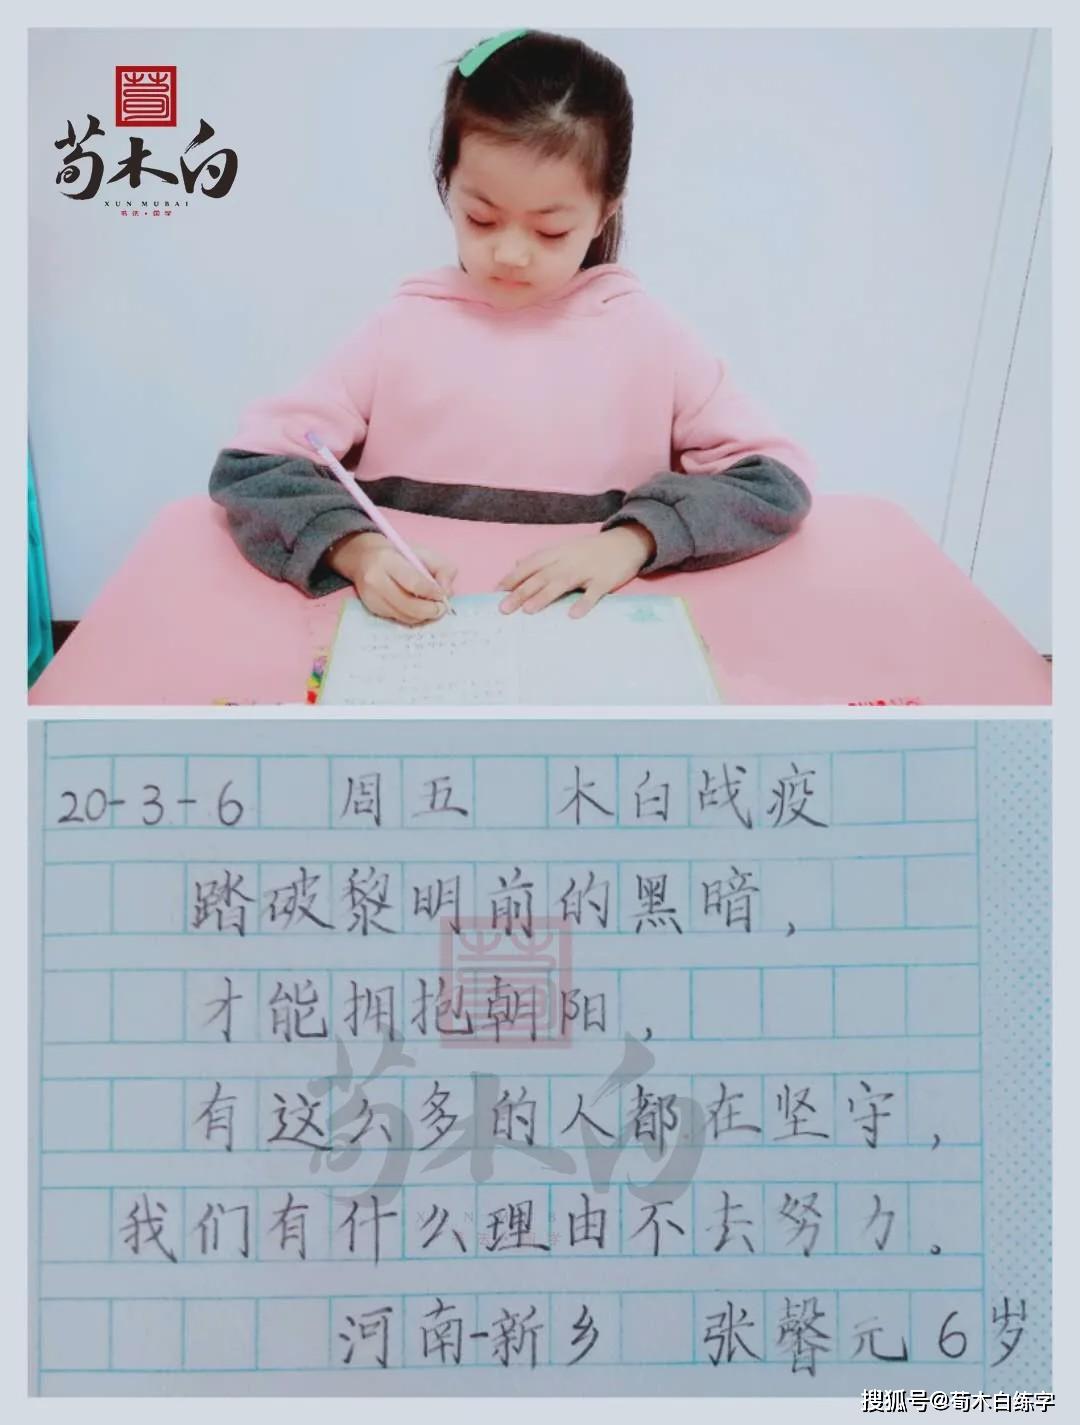 荀木白
XUN MUBAI
书法·国学
20-3-6 周五 木白战疫
踏破黎明前的黑暗，
才能拥抱朝阳，
有这么多的人都在坚守，
我们有什么理由不去努力。
河南-新乡 张馨元 6岁
搜狐号@荀木白练字